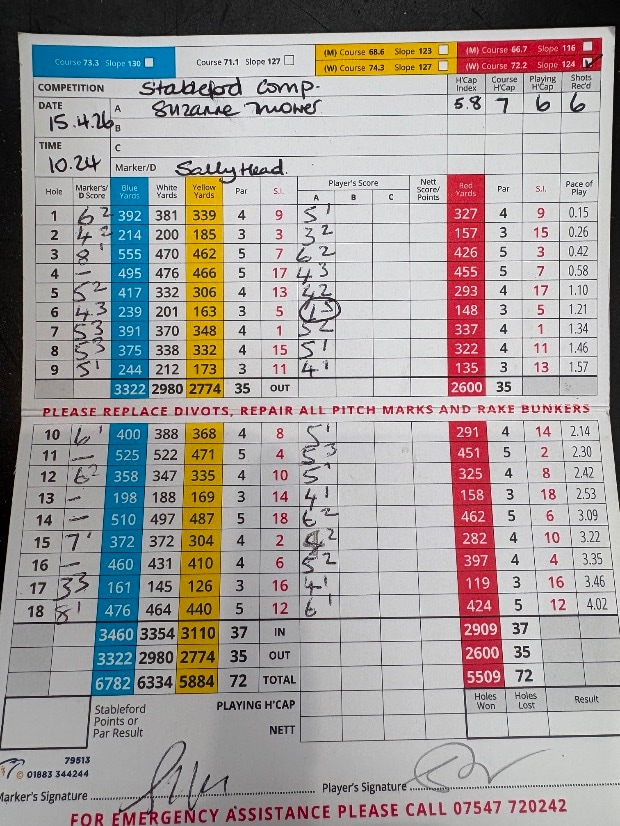 Course 73.3 Slope 130 Course 71.1 Slope 127 (M) Course 68.6 Slope 123 (M) Course 66.7 Slope 116
(W) Course 74.3 Slope 127 (W) Course 72.2 Slope 124
COMPETITION Stableford Comp. H'Cap Index Course H'Cap Playing H'Cap Shots Rec'd
DATE 15.4.26 A Suzanne Mower 5.8 7 6 6
B
TIME 10.24 C
Marker/D Sally Head.
Hole Marker's/D Score Blue Yards White Yards Yellow Yards Par S.I. Player's Score A B C Nett Score/Points Red Yards Par S.I. Pace of Play
1 6 2 392 381 339 4 9 5 1 327 4 9 0.15
2 4 2 214 200 185 3 3 3 2 157 3 15 0.26
3 8 1 555 470 462 5 7 6 2 426 5 3 0.42
4 – 495 476 466 5 17 4 3 455 5 7 0.58
5 5 2 417 332 306 4 13 4 2 293 4 17 1.10
6 4 3 239 201 163 3 5 1 5 148 3 5 1.21
7 5 3 391 370 348 4 1 5 2 337 4 1 1.34
8 5 3 375 338 332 4 15 5 1 322 4 11 1.46
9 5 1 244 212 173 3 11 4 1 135 3 13 1.57
3322 2980 2774 35 OUT 2600 35
PLEASE REPLACE DIVOTS, REPAIR ALL PITCH MARKS AND RAKE BUNKERS
10 6 1 400 388 368 4 8 5 1 291 4 14 2.14
11 – 525 522 471 5 4 5 3 451 5 2 2.30
12 6 2 358 347 335 4 10 5 1 325 4 8 2.42
13 – 198 188 169 3 14 4 1 158 3 18 2.53
14 – 510 497 487 5 18 6 2 462 5 6 3.09
15 7 1 372 372 304 4 2 4 2 282 4 10 3.22
16 – 460 431 410 4 6 5 2 397 4 4 3.35
17 3 3 161 145 126 3 16 4 1 119 3 16 3.46
18 8 1 476 464 440 5 12 6 1 424 5 12 4.02
3460 3354 3110 37 IN 2909 37
3322 2980 2774 35 OUT 2600 35
6782 6334 5884 72 TOTAL 5509 72
Stableford Points or Par Result PLAYING H'CAP Holes Won Holes Lost Result
NETT
79513
© 01883 344244
Marker's Signature Player's Signature
FOR EMERGENCY ASSISTANCE PLEASE CALL 07547 720242